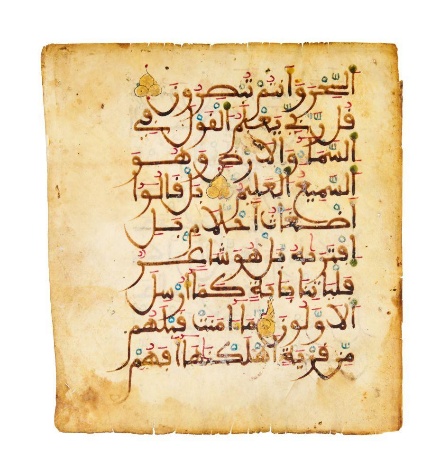 السحر وأنتم تبصرون
قل ربي يعلم القول في
السماء والأرض وهو
السميع العليم بل قالوا
أضغاث أحلام بل
افتريه بل هو شاعر
فليأتنا بآية كما أرسل
الأولون ما آمنت قبلهم
من قرية أهلكناها أفهم